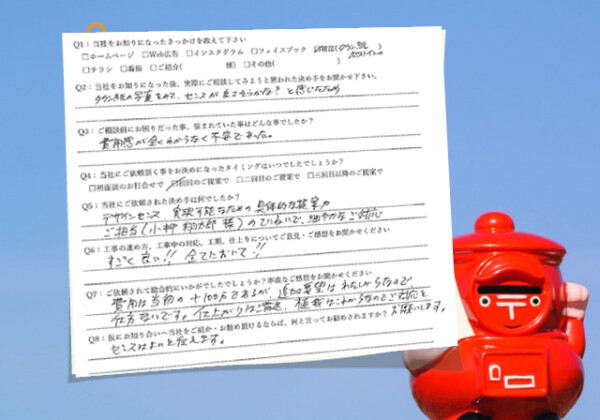 Q1：当社をお知りになったきっかけを教えて下さい
□ホームページ □Web広告 □インスタグラム □フェイスブック
□チラシ □看板 □ご紹介( 様) □その他( )
Q2：当社をお知りになった後、実際にご相談してみようと思われた決め手をお聞かせ下さい。
タウン誌の写真をみて、センスが良さそうかな？と感じたため
Q3：ご相談前にお困りだった事、悩まれていた事はどんな事でしたか？
費用感が全くわからなく不安でした。
Q4：当社にご依頼頂く事をお決めになったタイミングはいつでしたでしょうか？
□初座談のお打合せで ☑初回のご提案で □二回目のご提案で □三回目以降のご提案で
Q5：当社にご依頼された決め手は何でしたか？
デザインセンス、実現可能なための具体的な提案力
ご担当(小柳 翔太郎 様)のていねいで、細やかなご対応
Q6：工事の進め方、工事中の対応、工期、仕上りについてご意見・ご感想をお聞かせください
すごく良い!! 全てにおいて!!
Q7：ご依頼されて総合的にいかがでしたでしょうか？率直なご感想をお聞かせください
費用は当初の+100万であるが、追加要望はわたしからなので
仕方ないです。仕上がりはご満足、植栽はこれからなのでご対応を
お願いします。
Q8：仮にお知り合いへ当社をご紹介・お勧め頂けるならば、何と言ってお勧めされますか？
センスはよいと伝えます。
〒